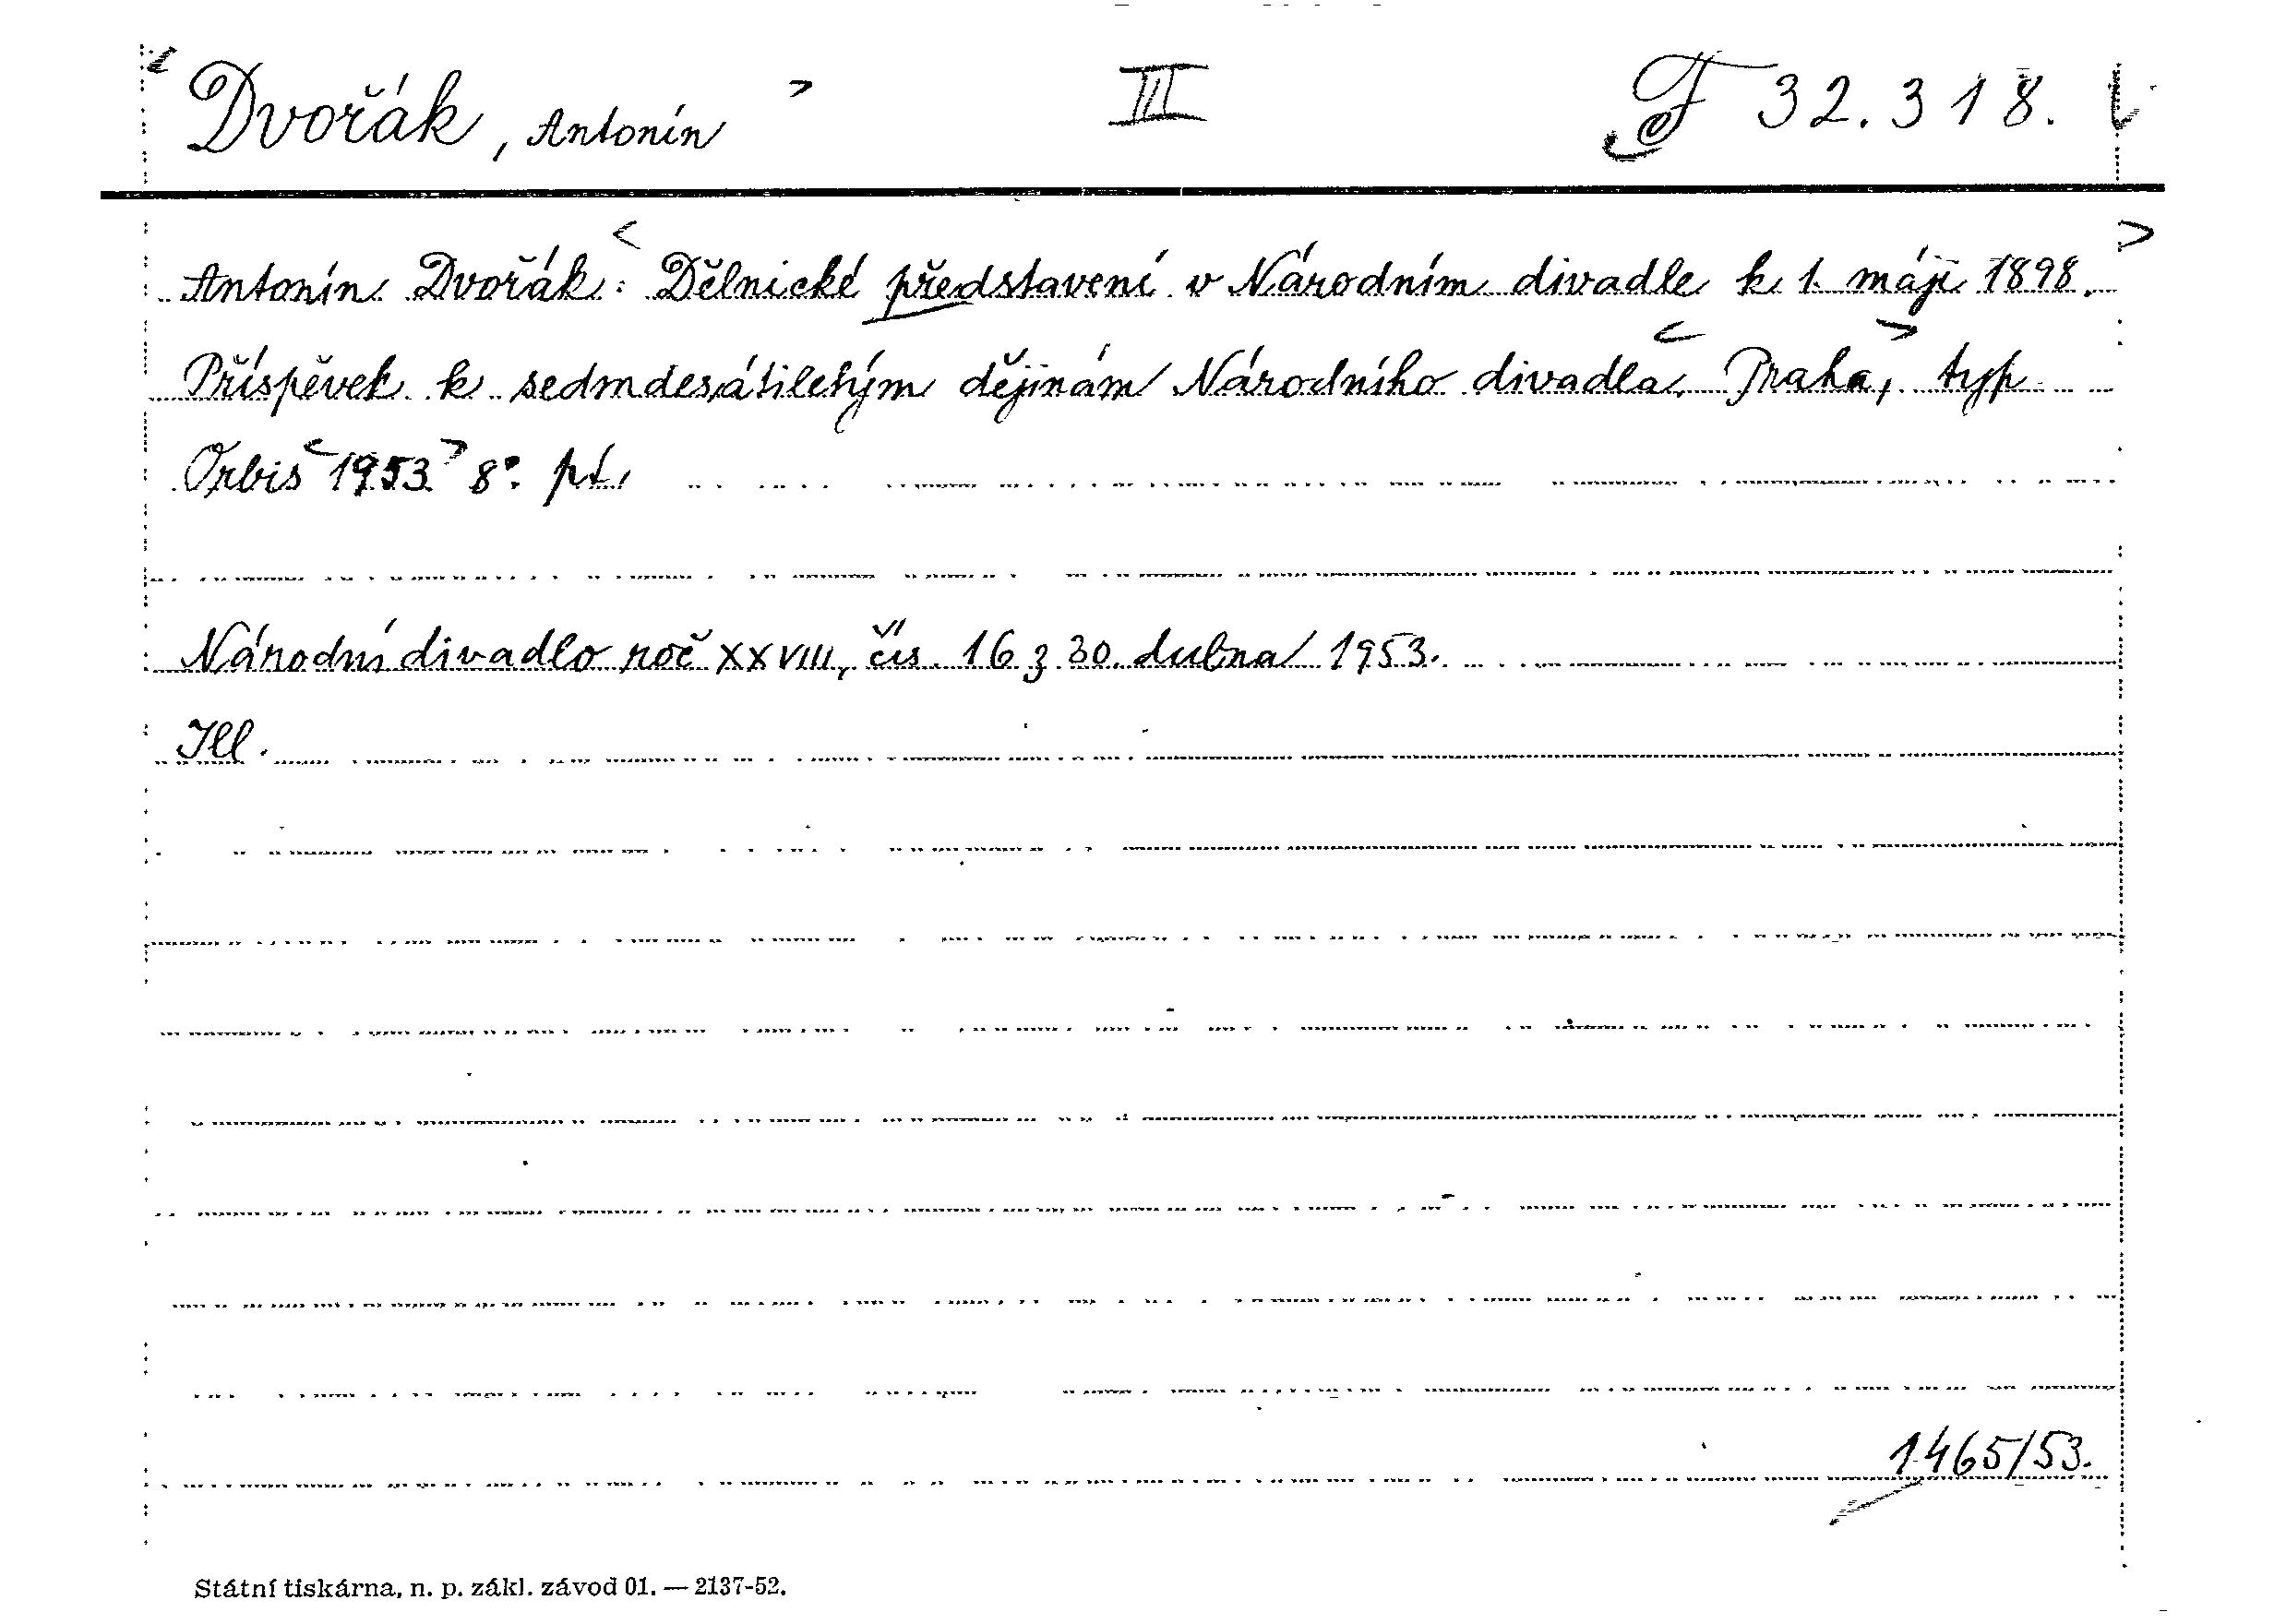 Dvořák, Antonín III F 32.318.
Antonín Dvořák: Dělnické představení v Národním divadle k 1. máji 1898.
Příspěvek k sedmdesátiletým dějinám Národního divadla. Praha, typ
Orbis 1953. 8°. pt.
Národní divadlo roč XXVIII, čís. 16 z 30. dubna 1953.
Ill.
1465/53.
Státní tiskárna, n. p. zákl. závod 01. — 2137-52.